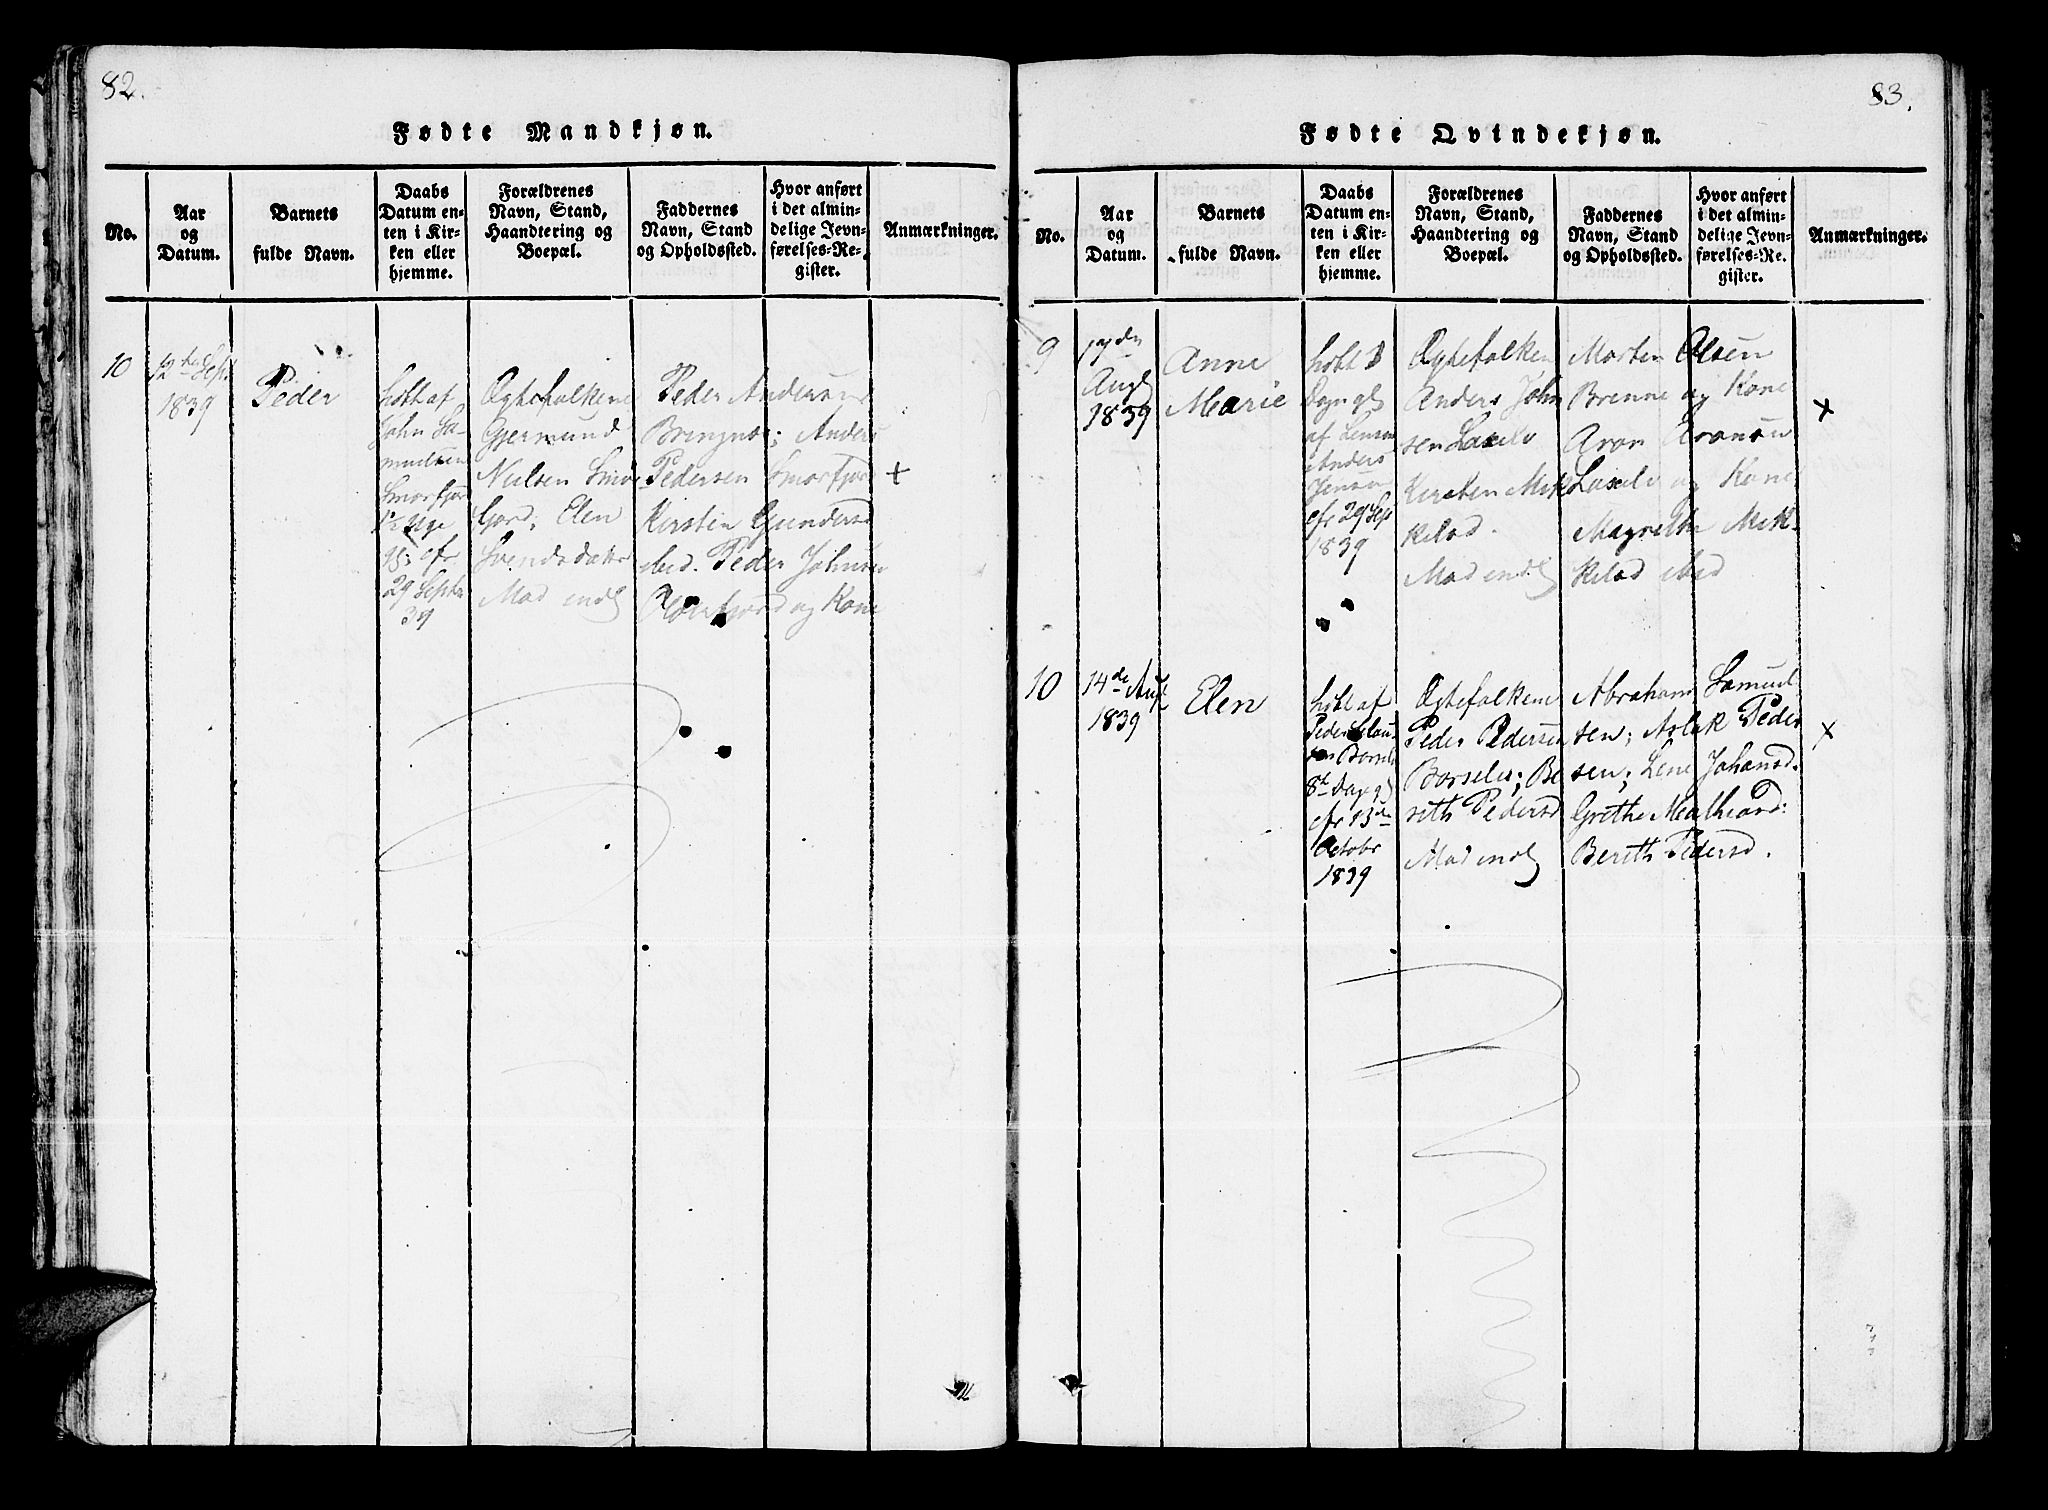 82.
Fødte Mandkjøn.
No.
Aar
og
Datum.
Barnets
fulde Navn.
Daabs
Datum en-
ten i Kir-
ken eller
hjemme.
Forældrenes
Navn, Stand,
Haandtering og
Boepæl.
Faddernes
Navn, Stand
og Opholdssted.
Hvor anført
i det almin-
delige Jevn-
førelses-Re-
gister.
Anmærkninger.
10
12te Septr
1839
Peder
hdbt af
John Sa-
muelsen
Smorfjor
1½ Uge
gl: efr
29 Septr
39
Ægtefolkene
Gjermund
Nielsen Smør
fjord; Elen
Svendsdatter
Mad endl
Peder Andersen
Anders
Pedersen Smorfjord
Kirsten Gundersd
ibid. Peder Johnsen
og Kone
+
83.
Fødte Qvindekjøn.
No.
Aar
og
Datum.
Barnets
fulde Navn.
Daabs
Datum en-
ten i Kir-
ken eller
hjemme.
Forældrenes
Navn, Stand,
Haandtering og
Boepæl.
Faddernes
Navn, Stand
og Opholdssted.
Hvor anført
i det almin-
delige Jevn-
førelses-Re-
gister.
Anmærkninger.
9
17de
Augt
1839
Anne
Marie
Dag gl
af
Anders
Jensen
efr 29 Sep
1839
Ægtefolken
Anders John
sen Laxelv
Kirsten Mik
kelsd.
Mad endl
Morten Olsen
Brenne og Kone
Aron Aronsen
Laxelv og Kone
Magrethe Mik-
kelsd ibid
+
10
14de Augt
1839
Elen
hdbt af
Peder Clau-
sen
8te Dag gl
efr 13de
Octobr
1839
Ægtefolkene
Peder Pedersen
Børselv; Be
reth Pedersd
Mad endl
Abraham Samuel
sen; Aslak Peder
sen; Lene Johansd.
Grethe
Bereth Pedersd.
+